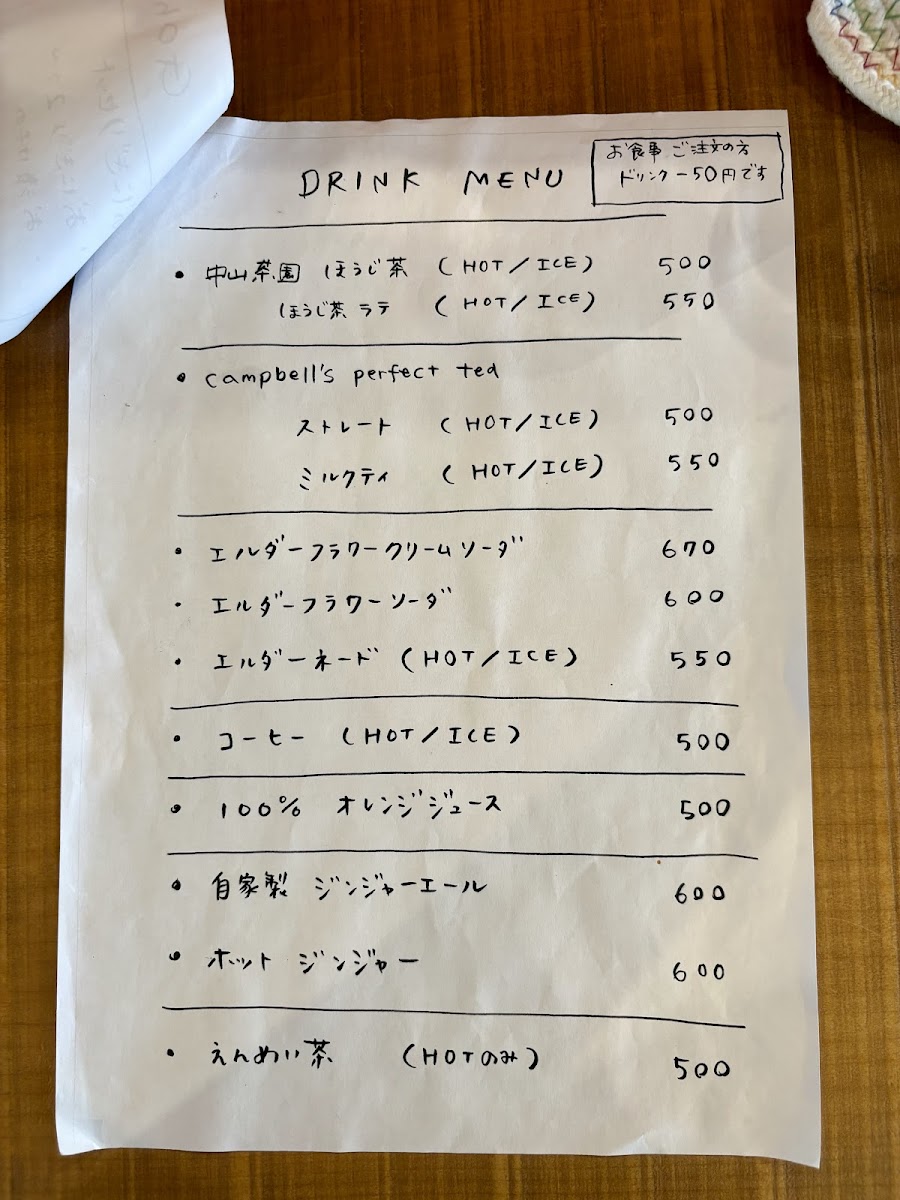 DRINK MENU
お食事 ご注文の方
ドリンク -50円です
• 中山茶園 ほうじ茶 (HOT/ICE) 500
ほうじ茶 ラテ (HOT/ICE) 550
• campbell's perfect tea
ストレート (HOT/ICE) 500
ミルクティ (HOT/ICE) 550
• エルダーフラワークリームソーダ 670
• エルダーフラワーソーダ 600
• エルダーネード (HOT/ICE) 550
• コーヒー (HOT/ICE) 500
• 100% オレンジジュース 500
• 自家製 ジンジャーエール 600
• ホット ジンジャー 600
• えんめい茶 (HOTのみ) 500